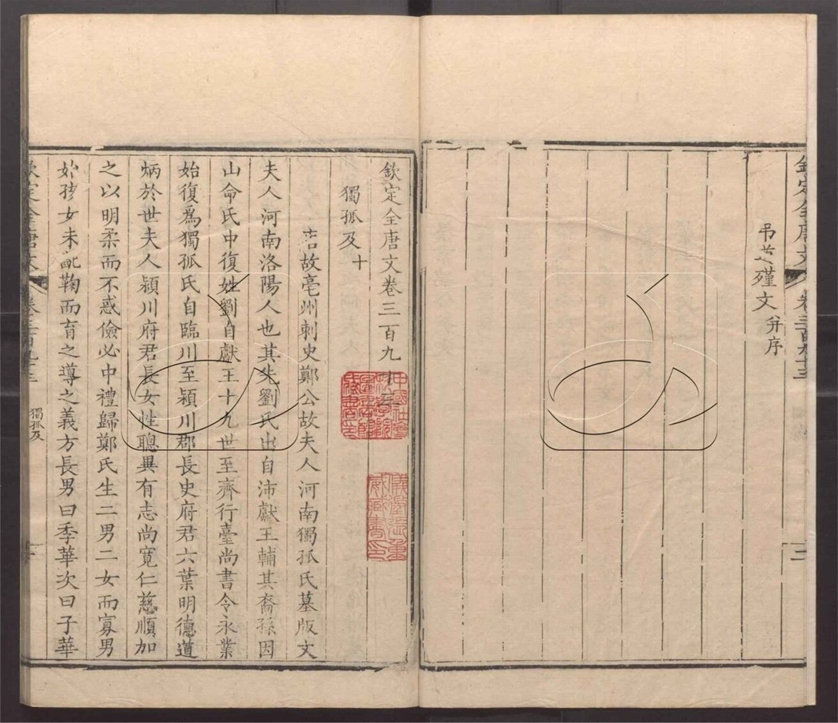 弔道殣文并序
欽定全唐文 卷三百九十三
欽定全唐文卷三百九十三
獨孤及十
唐故亳州刺史鄭公故夫人河南獨孤氏墓版文
夫人河南洛陽人也其先劉氏出自沛獻王輔其裔孫因
山命氏中復姓劉自獻王十九世至齊行臺尚書令永業
始復爲獨孤氏自臨川至潁川郡長史府君六葉明德道
炳於世夫人潁川府君長女性聰異有志尚寬仁慈順加
之以明柔而不惑儉必中禮歸鄭氏生二男二女而寡男
始孩女未齔鞠而育之導之義方長男曰季華次曰子華
欽定全唐文 卷三百九十三 獨孤及